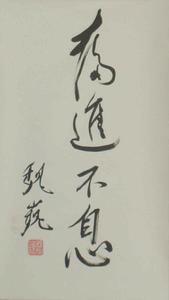 奋進不息
魏巍